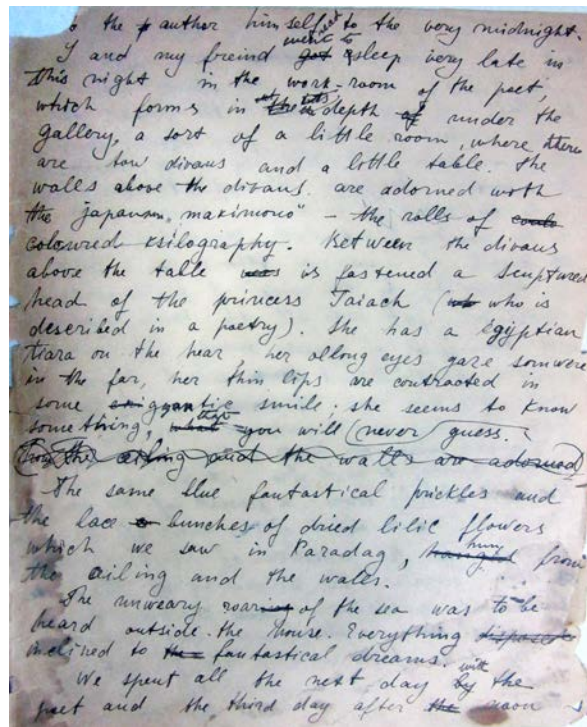 to the author himself to the very midnight.
I and my freind went to sleep very late in
this night in the work-room of the poet,
which forms in the depth under the
gallery, a sort of a little room, where there
are tow divans and a little table. The
walls above the divans are adorned with
the japanesn „makimono" – the rolls of
coloured ksilography. Between the divans
above the table is fastened a sculptured
head of the princess Taiach (who is
described in a poetry). She has a egyptian
tiara on the hear, her oblong eyes gaze somwere
in the far, her thin lips are contracted in
some smile; she seems to know
something, that you will never guess.
From the ailing and the walls are adorned
The same blue fantastical prickles and
the lace bunches of dried lilic flowers
which we saw in Karadag, hung from
the ailing and the walls.
The unweary roar of the sea was to be
heard outside the house. Everything
inclined to fantastical dreams.
We spent all the next day with the
poet and the third day after the noon